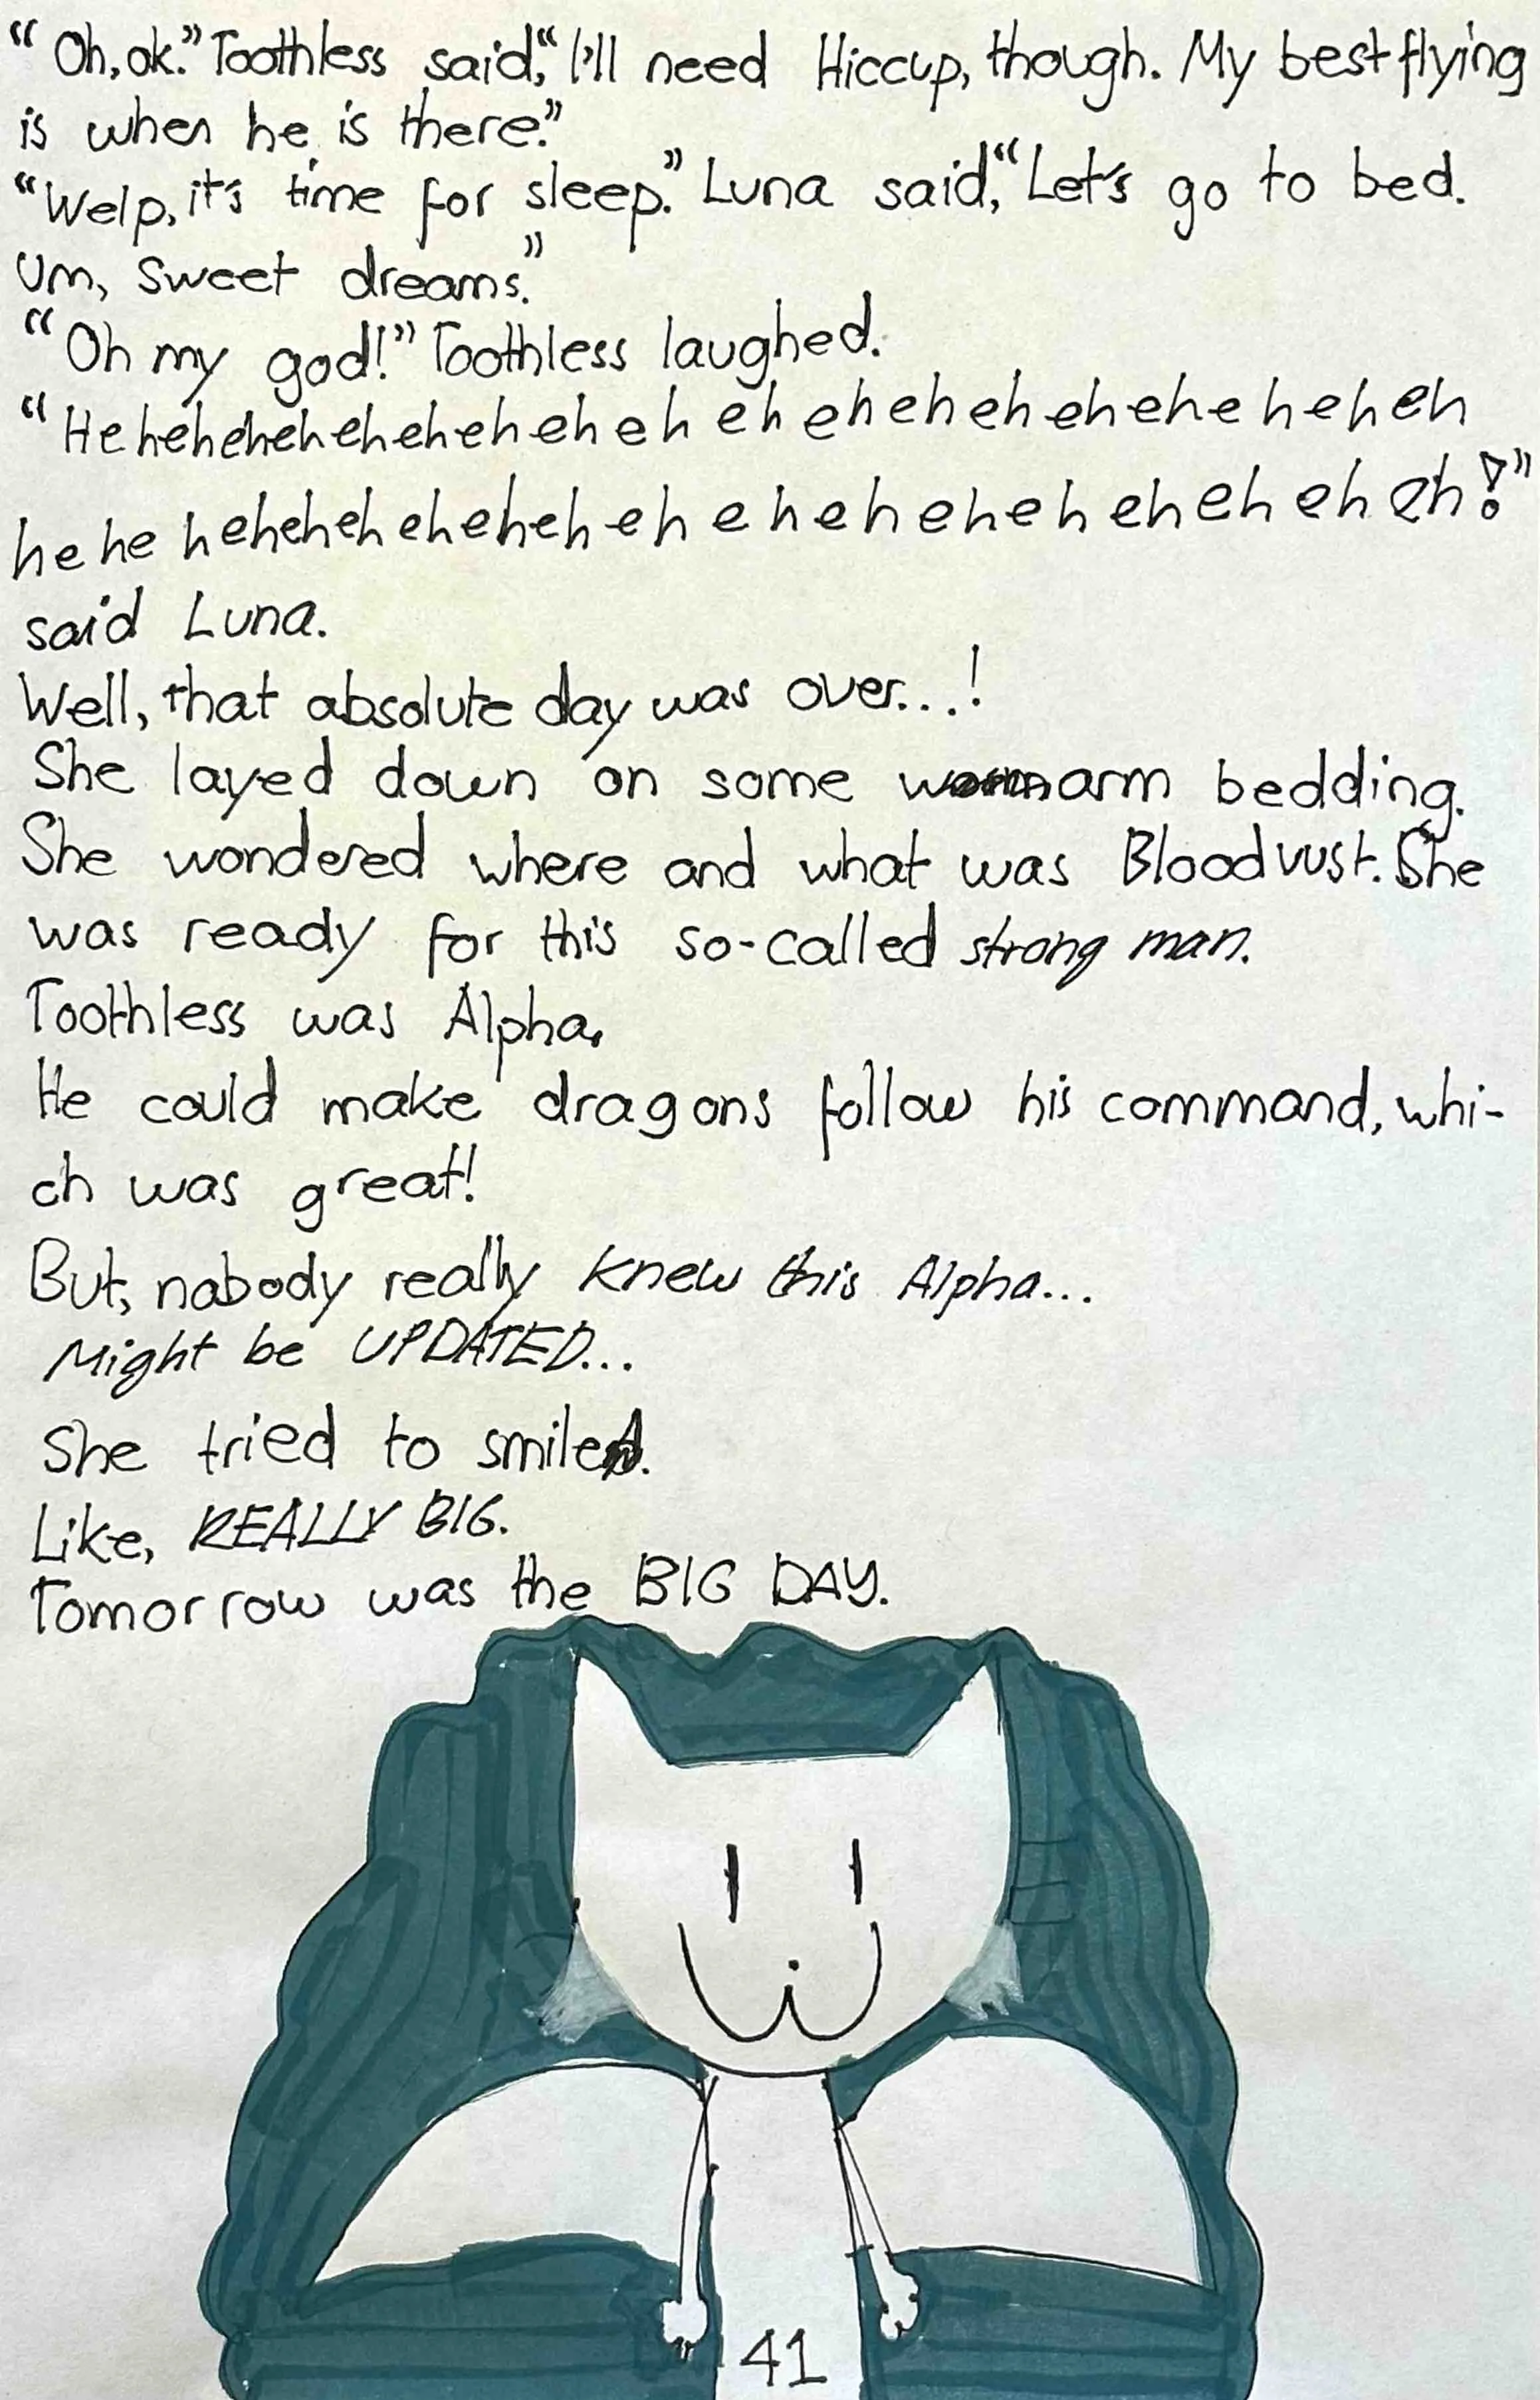 "Oh, ok." Toothless said, "I'll need Hiccup, though. My best flying
is when he is there."
"Welp, it's time for sleep." Luna said, "Let's go to bed.
Um, sweet dreams."
"Oh my god!" Toothless laughed.
"Heheheheheheheheheheheheheheheheheheheheh
heheheheheheheheheheheheheheheheheheheheh!"
said Luna.
Well, that absolute day was over...!
She layed down on some warm bedding.
She wondered where and what was Bloodvust. She
was ready for this so-called strong man.
Toothless was Alpha.
He could make dragons follow his command, whi-
ch was great!
But, nabody really knew this Alpha...
Might be UPDATED...
She tried to smile.
Like, REALLY BIG.
Tomorrow was the BIG DAY.
41